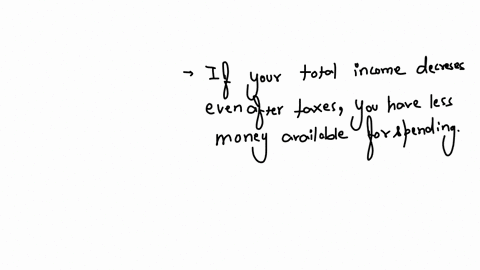 → If your total income decreses
even after taxes, you have less
money available for spending.